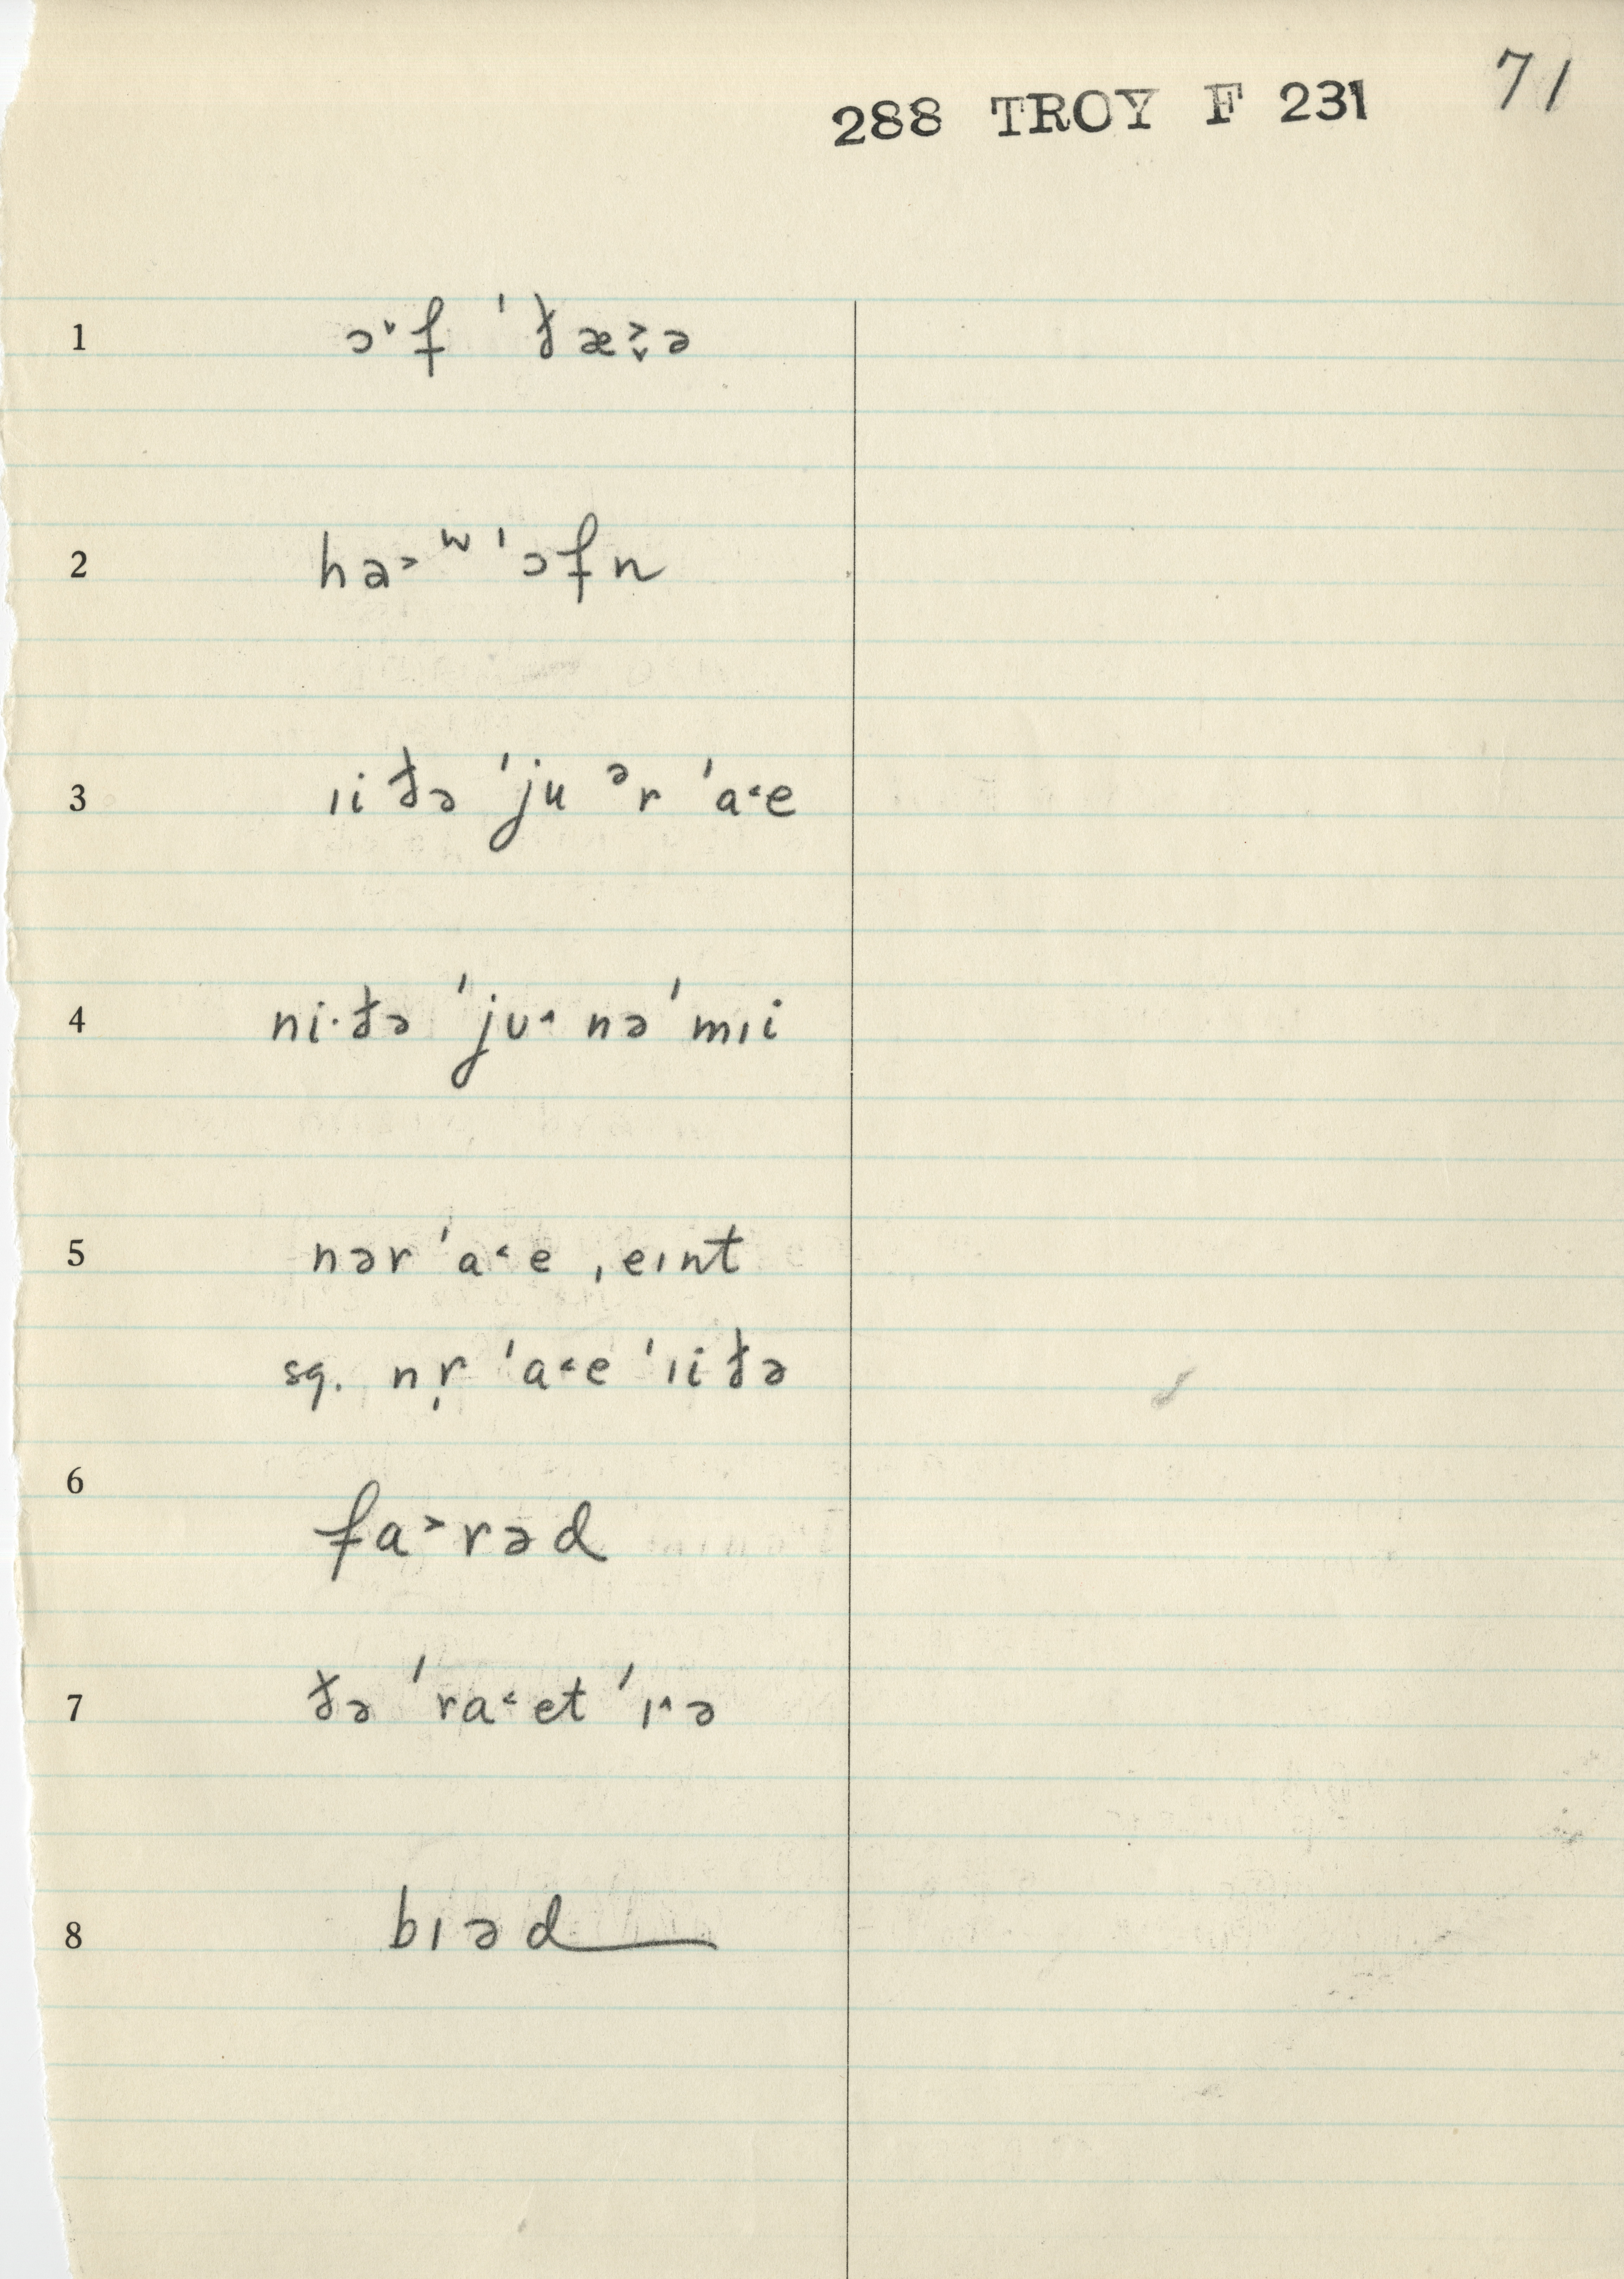 71
288 TROY F 231
1 ɔ˅f ˈðæ˃˅ə
2 hə˃ʷ ˈɔfn
3 ɪiðə ˈju ᵊr ˈa˂e
4 ni·ðə ˈjʊ˂ nə ˈmɪi
5 nər ˈa˂e ˌeɪnt
sq. nr̩ ˈa˂e ˈɪiðə
6 fa˃rəd
7 ðə ˈra˂et ˈɪ˄ə
8 bɪəd